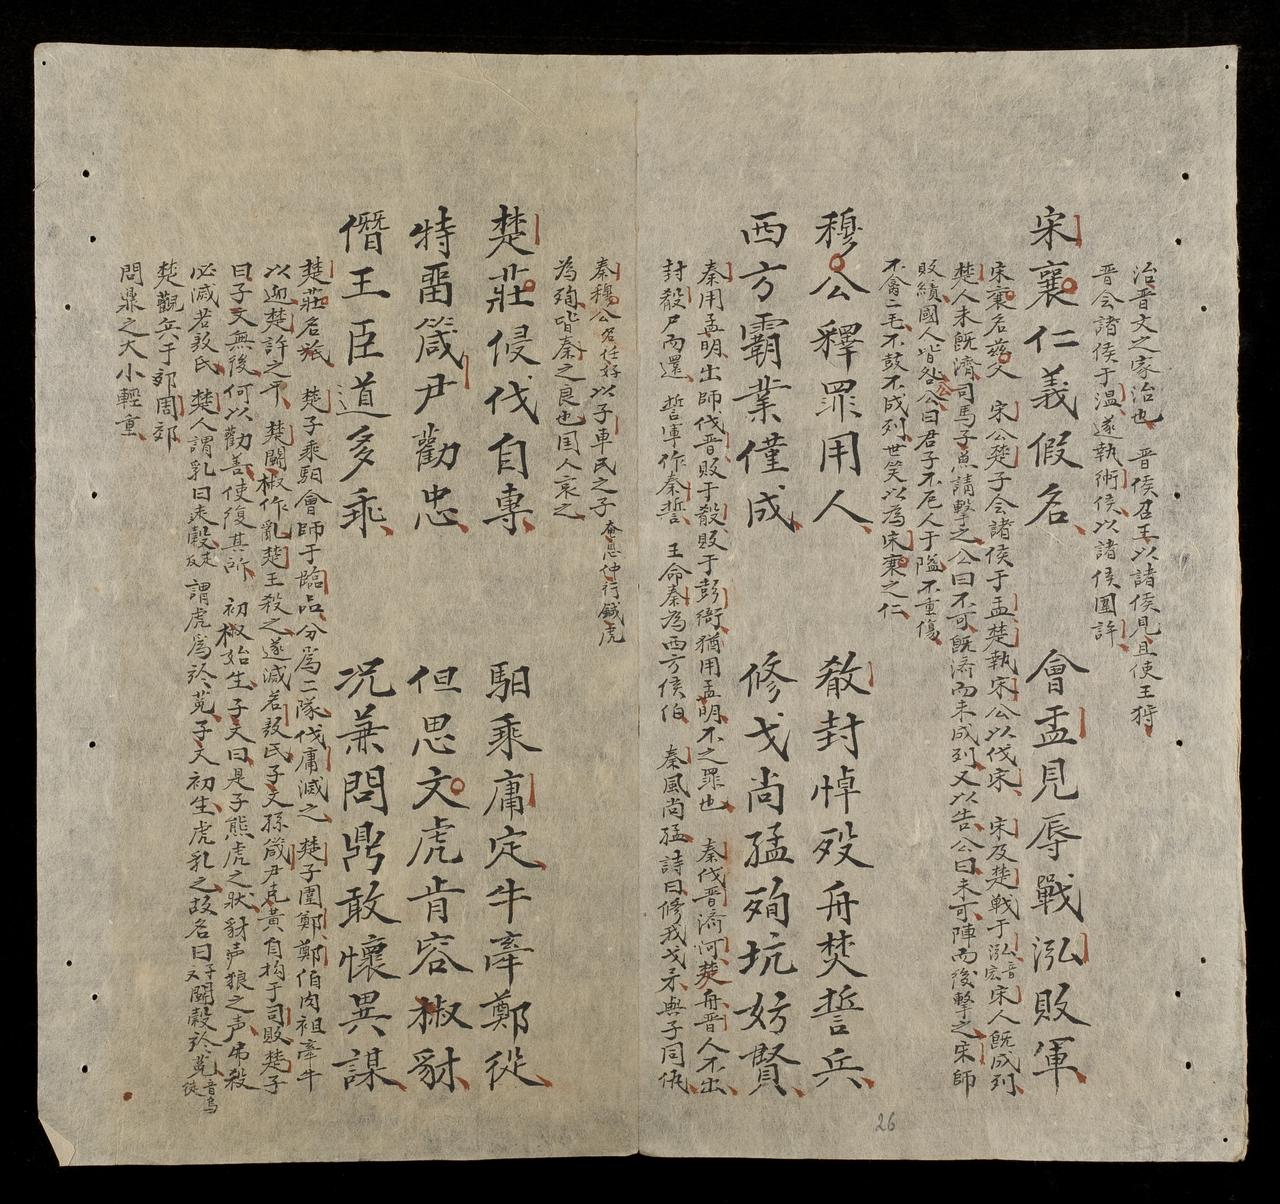 治晋文之家治也 晋侯召王以諸侯見且使王狩
晋会諸侯于温遂執術侯以諸侯圍許
宋襄仁義假名 會盂見辱戰泓敗軍
宋襄名兹父 宋公楚子会諸侯于盂楚執宋公以伐宋 宋及楚戦于泓音宏宋人既成列
楚人未既濟司馬子魚請擊之公曰不可既済而未成列又以告公曰未可陣而後擊之宋師
敗績國人皆咎公公曰君子不厄人于隘不重傷
不禽二毛不鼓不成列世笑以為宋襄之仁
穆公釋罪用人 殽封悼歿舟焚誓兵
西方霸業僅成 修戈尚猛殉坑妨賢
秦用孟明出師伐晋敗于殽敗于彭衙猶用孟明不之罪也 秦伐晋済河焚舟晋人不出
封殽尸而還 誓軍作秦誓 王命秦為西方侯伯 秦風尚猛詩曰修我戈矛與子同仇
秦穆公名任好以子車氏之子奄息仲行鍼虎
為殉皆秦之良也国人哀之
楚莊侵伐自專 馹乘庸定牛牽鄭從
特畱箴尹勸忠 但思文虎肯容椒豺
僭王臣道多乖 况兼問鼎敢懷異謀
楚莊名旅 楚子乘馹會師于臨品分爲二隊伐庸滅之 楚子圍鄭鄭伯肉袒牽牛
以迎楚許之平 楚闘椒作亂楚王殺之遂滅若敖氏子文孫箴尹克黃自拘于司敗楚子
曰子文無後何以勸善使復其所 初椒始生子文曰是子熊虎之狀豺声狼之声弗殺
必滅若敖氏 楚人謂乳曰穀 謂虎爲於菟子文初生虎乳之故名曰子文闘穀於菟音烏徒
楚觀兵于郊周郊
問鼎之大小輕重
26